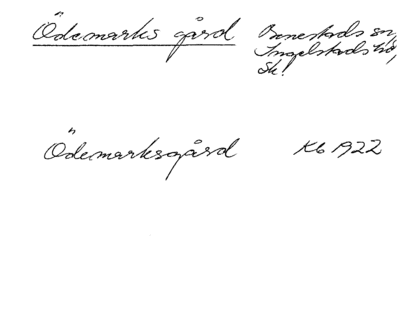 Ödemarks gård Benestads sn,
Ingelstads hd,
Sk!
Ödemarksgård Kb 1922